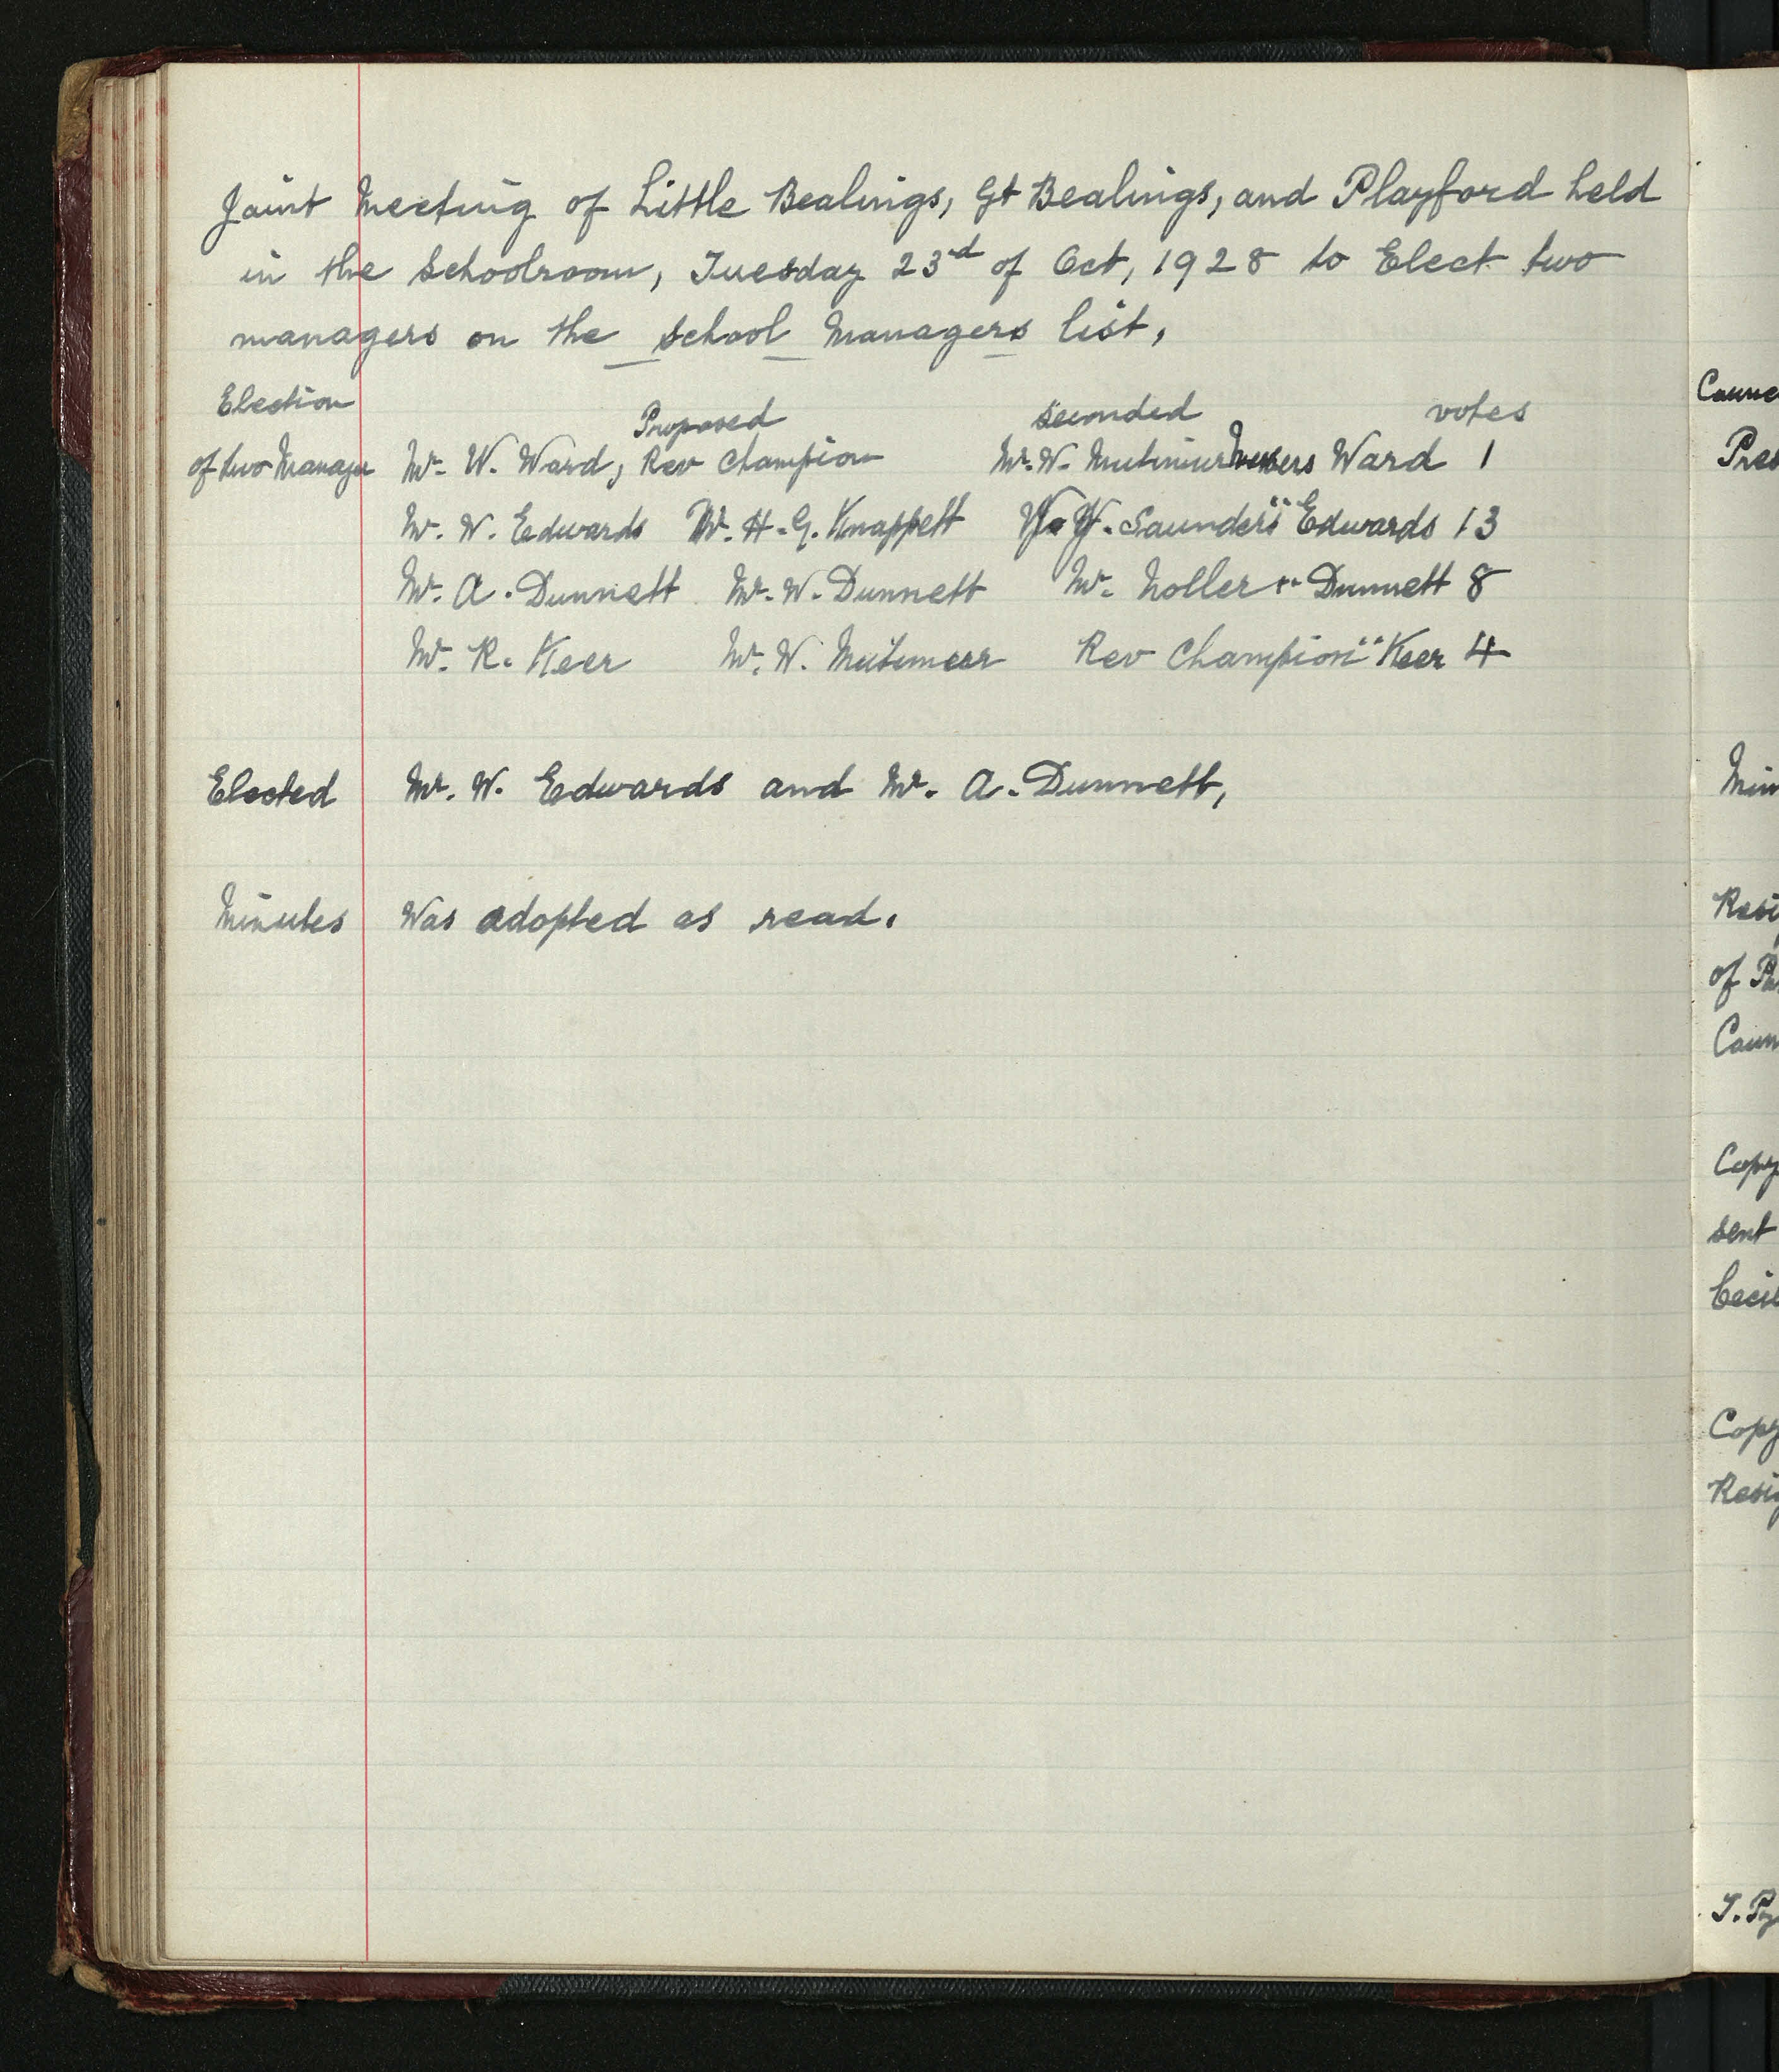 Joint Meeting of Little Bealings, Gt Bealings, and Playford held
in the Schoolroom, Tuesday 23rd of Oct, 1928 to Elect two
managers on the School Managers list,
Election
Proposed seconded votes
of two Manager Mr. W. Ward, Rev Champion Mr. W. Mutimer Ward 1
Mr. W. Edwards Mr. H. G. Knappett W. Saunders " Edwards 13
Mr. A. Dunnett Mr. W. Dunnett Mr. Noller " Dunnett 8
Mr. R. Keer Mr. W. Mutimeer Rev Champion " Keer 4
Elected Mr. W. Edwards and Mr. A. Dunnett,
Minutes Was adopted as read.
Counc
Pres
Min
Resi
of Pa
Coun
Copy
sent
Cecil
Copy
Resig